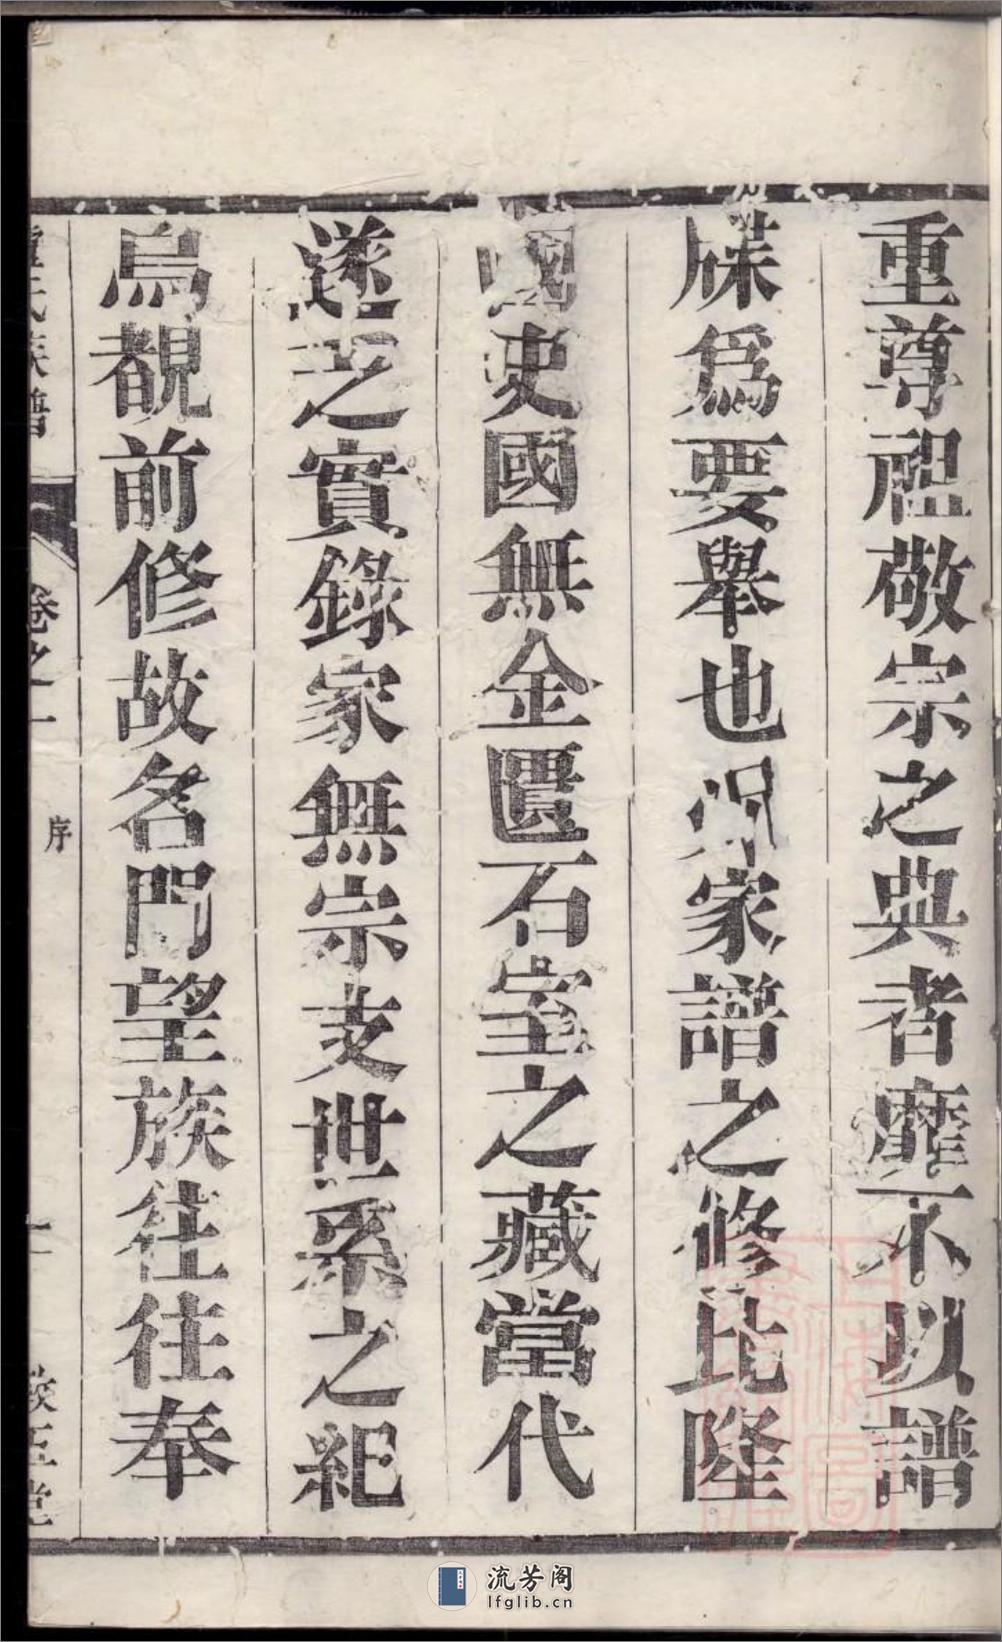 重尊祖敬宗之典者靡不以譜
牒為要舉也況家譜之修比隆
國史國無金匱石室之藏當代
遂乏實錄家無宗支世系之紀
烏覩前修故名門望族往往奉
氏族譜
卷之一
序
一
敦五堂
流芳阁
lfglib.cn